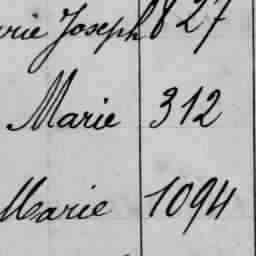 rie Joseph 827
Marie 312
Marie 1094